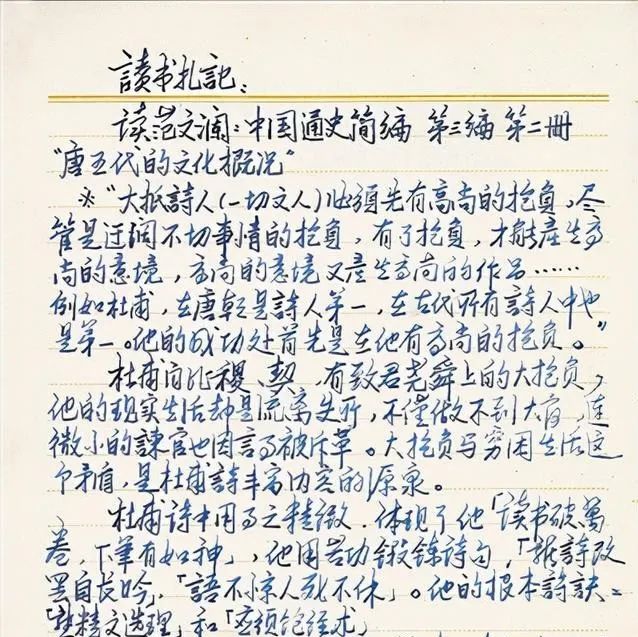 讀书扎記：
读范文瀾：中国通史简编 第三编 第二册
"唐五代的文化概况"
※"大抵詩人(一切文人)必須先有高尚的抱负，尽
管是迂阔不切事情的抱负，有了抱负，才能產生高
尚的意境，高尚的意境又產生高尚的作品……
例如杜甫，在唐朝是詩人第一，在古代所有詩人中也
是第一。他的成功处首先是在他有高尚的抱负。"
杜甫自比稷、契，有致君堯舜上的大抱负，
他的现实生活却是流离失所，不僅做不到大官，連
微小的諫官也因言事被斥革。大抱负与穷困生活这
个矛盾，是杜甫詩丰富内容的源泉。
杜甫诗中用事之精微，体现了他「读书破萬
卷，下筆有如神」，他用苦功锻鍊诗句，「新詩改
罢自长吟，「語不惊人死不休」。他的根本詩訣：
「熟精文选理」和「应须饱经术」